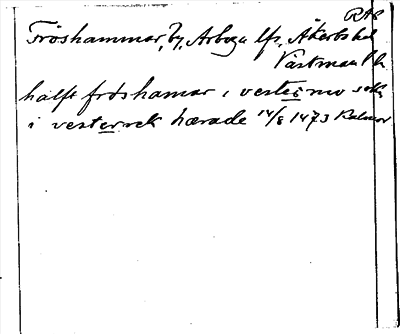 RAP
Fröshammar, by, Arboga lfs, Åkerbo hd
Västmanl. l.
halft fröshamar i vestesmo sokn
i vesterrek hærade 14/8 1473 Kalmar